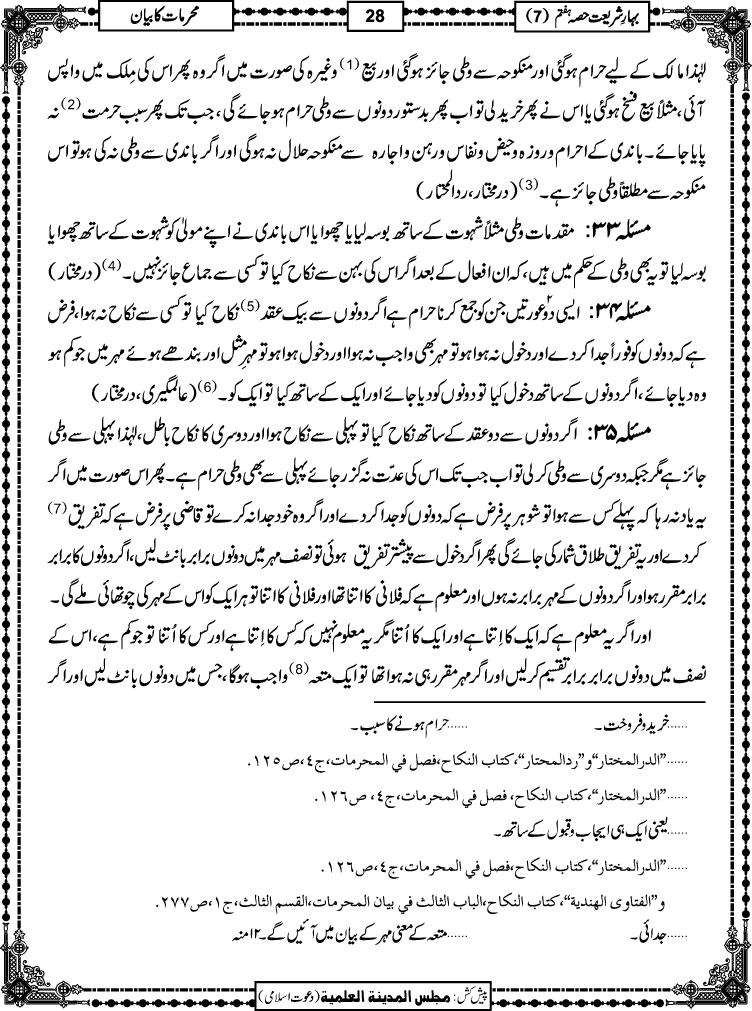 بہارِ شریعت حصہ ہفتم (7)
28
محرمات کا بیان
لہٰذا مالک کے لیے حرام ہوگئی اور منکوحہ سے وطی جائز ہوگئی اور بیع (1) وغیرہ کی صورت میں اگر وہ پھر اس کی مِلک میں واپس
آئی، مثلاً بیع فسخ ہوگئی یا اس نے پھر خرید لی تو اب پھر بدستور دونوں سے وطی حرام ہو جائے گی، جب تک پھر سبب حرمت (2) نہ
پایا جائے۔ باندی کے احرام و روزہ و حیض و نفاس و رہن و اجارہ سے منکوحہ حلال نہ ہوگی اور اگر باندی سے وطی نہ کی ہو تو اس
منکوحہ سے مطلقاً وطی جائز ہے۔ (3) (درمختار، ردالمحتار)
مسئلہ ۳۳: مقدمات وطی مثلاً شہوت کے ساتھ بوسہ لیا یا چھوا یا اس باندی نے اپنے مولیٰ کو شہوت کے ساتھ چھوا یا
بوسہ لیا تو یہ بھی وطی کے حکم میں ہیں، کہ ان افعال کے بعد اگر اس کی بہن سے نکاح کیا تو کسی سے جماع جائز نہیں۔ (4) (درمختار)
مسئلہ ۳۴: ایسی دو ۲ عورتیں جن کو جمع کرنا حرام ہے اگر دونوں سے بیک عقد (5) نکاح کیا تو کسی سے نکاح نہ ہوا، فرض
ہے کہ دونوں کو فوراً جدا کر دے اور دخول نہ ہوا ہو تو مہر بھی واجب نہ ہوا اور دخول ہوا ہو تو مہرِ مثل اور بندھے ہوئے مہر میں جو کم ہو
وہ دیا جائے، اگر دونوں کے ساتھ دخول کیا تو دونوں کو دیا جائے اور ایک کے ساتھ کیا تو ایک کو۔ (6) (عالمگیری، درمختار)
مسئلہ ۳۵: اگر دونوں سے دو عقد کے ساتھ نکاح کیا تو پہلی سے نکاح ہوا اور دوسری کا نکاح باطل، لہٰذا پہلی سے وطی
جائز ہے مگر جبکہ دوسری سے وطی کر لی تو اب جب تک اس کی عدّت نہ گزر جائے پہلی سے بھی وطی حرام ہے۔ پھر اس صورت میں اگر
یہ یاد نہ رہا کہ پہلے کس سے ہوا تو شوہر پر فرض ہے کہ دونوں کو جدا کر دے اور اگر وہ خود جدا نہ کرے تو قاضی پر فرض ہے کہ تفریق (7)
کر دے اور یہ تفریق طلاق شمار کی جائے گی پھر اگر دخول سے پیشتر تفریق ہوئی تو نصف مہر میں دونوں برابر بانٹ لیں، اگر دونوں کا برابر
برابر مقرر ہو اور اگر دونوں کے مہر برابر نہ ہوں اور معلوم ہے کہ فلانی کا اتنا تھا اور فلانی کا اتنا تو ہر ایک کو اس کے مہر کی چوتھائی ملے گی۔
اور اگر یہ معلوم ہے کہ ایک کا اِتنا ہے اور ایک کا اُتنا مگر یہ معلوم نہیں کہ کس کا اِتنا ہے اور کس کا اُتنا تو جو کم ہے، اس کے
نصف میں دونوں برابر برابر تقسیم کر لیں اور اگر مہر مقرر ہی نہ ہوا تھا تو ایک متعہ (8) واجب ہوگا، جس میں دونوں بانٹ لیں اور اگر
......خرید و فروخت۔ ......حرام ہونے کا سبب۔
......”الدرالمختار“و”ردالمحتار“، کتاب النکاح، فصل في المحرمات، ج٤، ص١٢٥.
......”الدرالمختار“، کتاب النکاح، فصل في المحرمات، ج٤، ص١٢٦.
......یعنی ایک ہی ایجاب و قبول کے ساتھ۔
......”الدرالمختار“، کتاب النکاح، فصل في المحرمات، ج٤، ص١٢٦.
و”الفتاوی الھندیة“، کتاب النکاح، الباب الثالث في بیان المحرمات، القسم الثالث، ج١، ص٢٧٧.
......جدائی۔ ......متعہ کے معنی مہر کے بیان میں آئیں گے۔ ۱۲منہ
پیش کش: مجلس المدینة العلمیة (دعوت اسلامی)